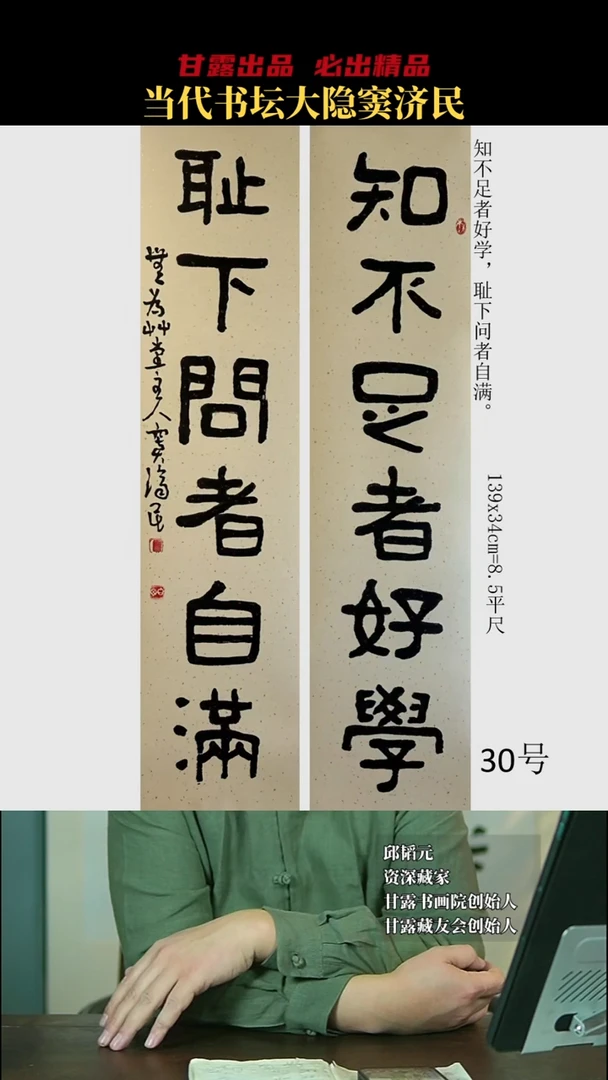 甘露出品 必出精品
当代书坛大隐窦济民
知不足者好學
耻下問者自滿
無為艸堂主人窦濟民
知不足者好学，耻下问者自满。
139x34cm=8.5平尺
30号
邱韬元
资深藏家
甘露书画院创始人
甘露藏友会创始人